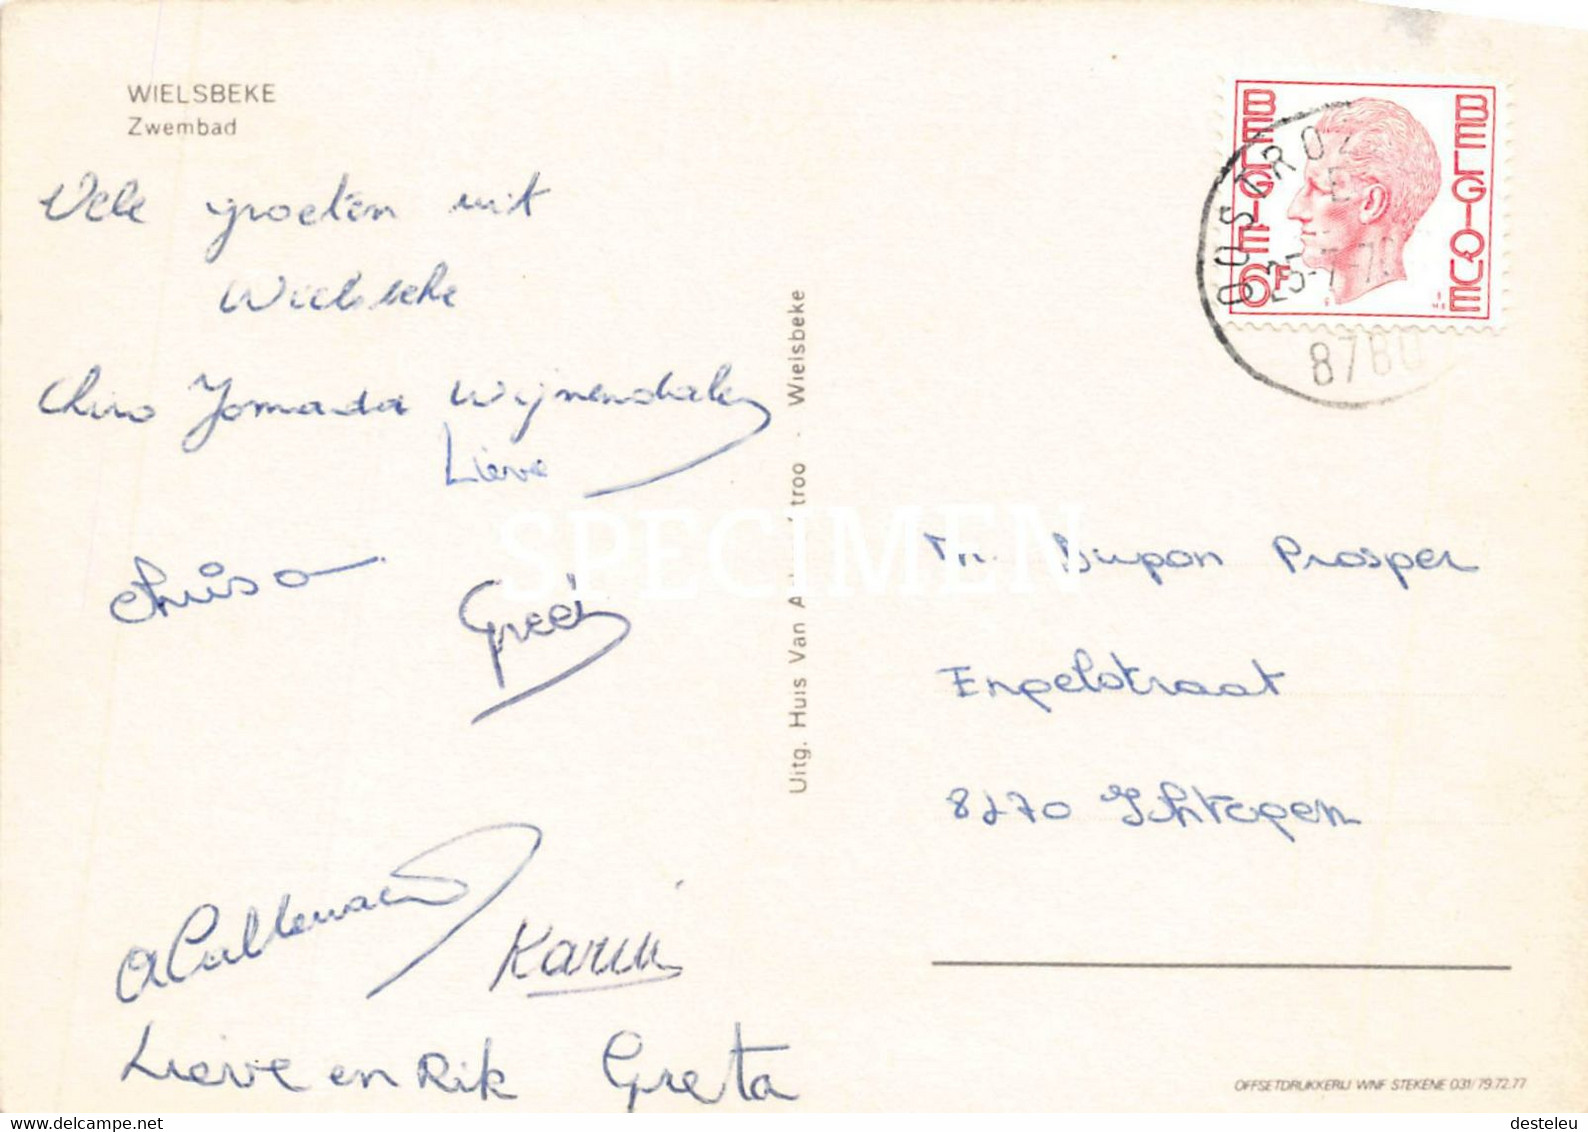 WIELSBEKE
Zwembad
Vele groeten uit
Wielsbeke
Chiro Jomada Wijnendale
Lieve
Greet
Karin
Lieve en Rik Greta
Uitg. Huis Van A troo - Wielsbeke
SPECIMEN
BELGIE BELGIQUE
6F
OOSTROZ
E
25-7-78
8780
Dupon Prosper
Engelstraat
8270 Ichtegem
OFFSETDRUKKERIJ WNF STEKENE 031/79.72.77
desteleu